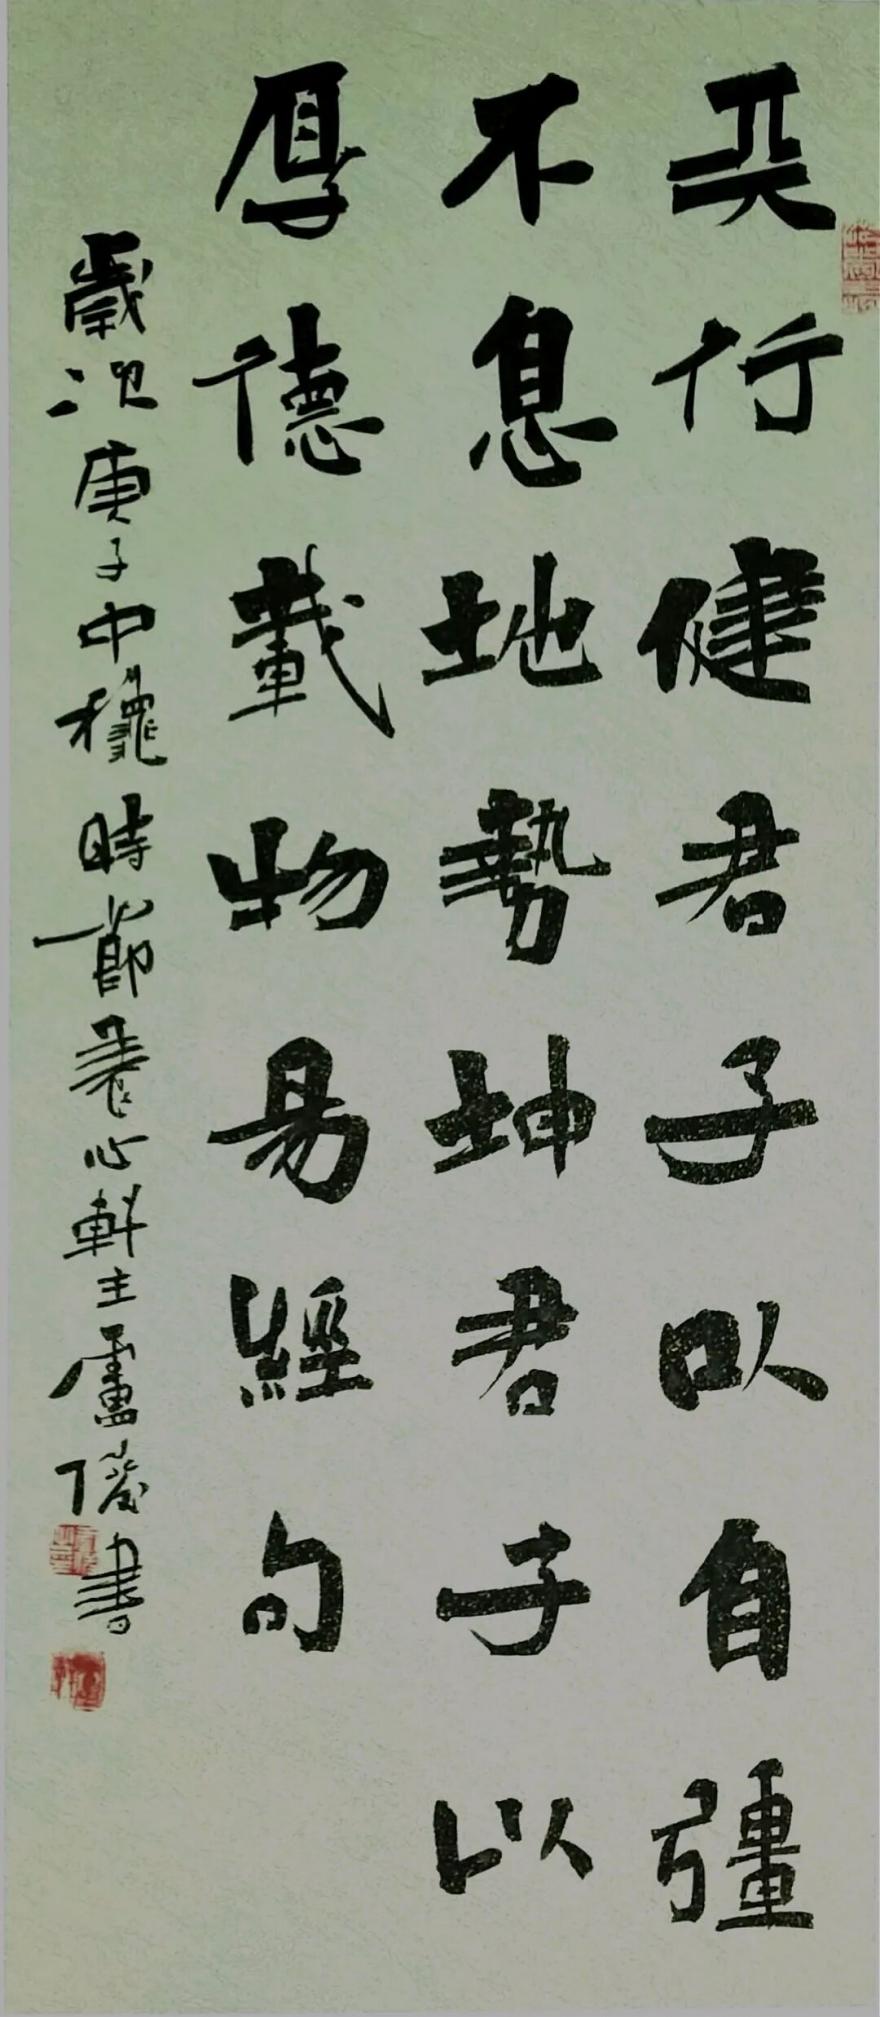 天行健君子以自彊
不息地勢坤君子以
厚德載物易經句
歲次庚子中穐時節養心軒主盧俊書